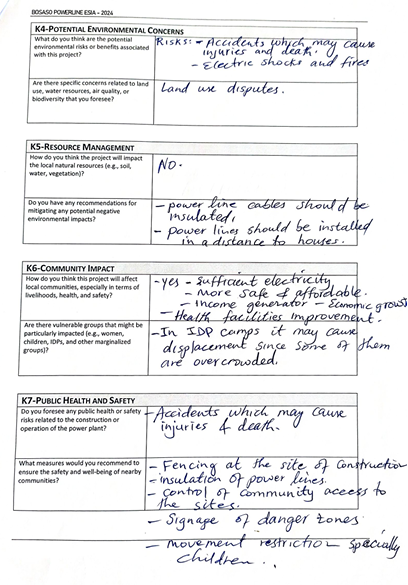 BOSASO POWERLINE ESIA – 2024
K4-POTENTIAL ENVIRONMENTAL CONCERNS
What do you think are the potential
environmental risks or benefits associated
with this project?
Risks: - Accidents which may cause
injuries and death.
- Electric shocks and fires
Are there specific concerns related to land
use, water resources, air quality, or
biodiversity that you foresee?
Land use disputes.
K5-RESOURCE MANAGEMENT
How do you think the project will impact
the local natural resources (e.g., soil,
water, vegetation)?
NO.
Do you have any recommendations for
mitigating any potential negative
environmental impacts?
- power line cables should be
insulated.
- power lines should be installed
in a distance to houses.
K6-COMMUNITY IMPACT
How do you think this project will affect
local communities, especially in terms of
livelihoods, health, and safety?
- yes - Sufficient electricity
- More safe & affordable.
- Income generator - Economic growth
- Health facilities improvement.
Are there vulnerable groups that might be
particularly impacted (e.g., women,
children, IDPs, and other marginalized
groups)?
- In IDP camps it may cause
displacement since some of them
are overcrowded.
K7-PUBLIC HEALTH AND SAFETY
Do you foresee any public health or safety
risks related to the construction or
operation of the power plant?
- Accidents which may cause
injuries & death.
What measures would you recommend to
ensure the safety and well-being of nearby
communities?
- Fencing at the site of Construction
- insulation of power lines.
- control of community access to
the sites.
- Signage of danger zones
- movement restriction specially
children.